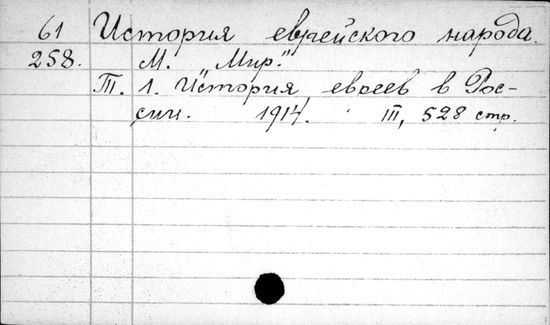 61 История еврейского народа.
258. М. "Мир."
Т. 1. История евреев в Рос-
сии. 1914. III, 528 стр.